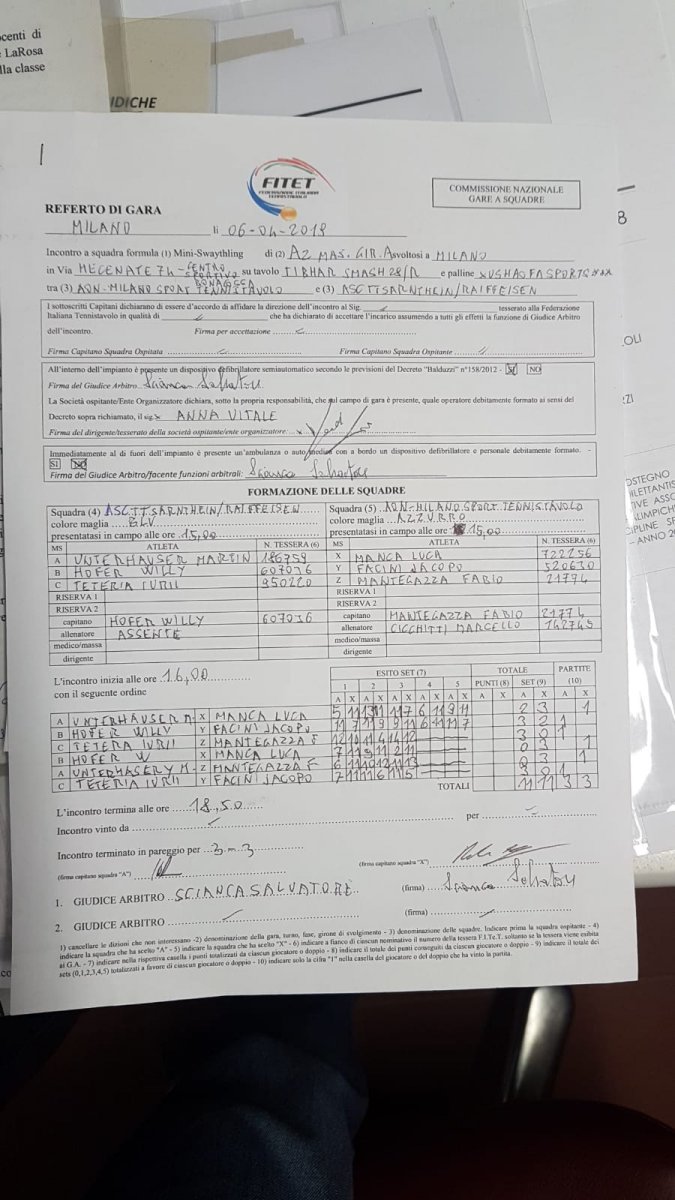 ocenti di
LaRosa
lla classe
IDICHE
FITET
FEDERAZIONE ITALIANA
TENNISTAVOLO
COMMISSIONE NAZIONALE
GARE A SQUADRE
REFERTO DI GARA
MILANO li 06-04-2019
Incontro a squadra formula (1) Mini-Swaythling di (2) A2 MAS. GIR. A svoltosi a MILANO
in Via MECENATE 74 - CENTRO SPORTIVO BONACOSSA su tavolo TIBHAR SMASH 28/R e palline XUSHAOFA SPORTS
tra (3) AON-MILANO SPORT TENNISTAVOLO e (3) ASCTTSARNTHEIN/RAIFFEISEN
I sottoscritti Capitani dichiarano di essere d'accordo di affidare la direzione dell'incontro al Sig. tesserato alla Federazione
Italiana Tennistavolo in qualità di che ha dichiarato di accettare l'incarico assumendo a tutti gli effetti la funzione di Giudice Arbitro
dell'incontro. Firma per accettazione
Firma Capitano Squadra Ospitata Firma Capitano Squadra Ospitante
All'interno dell'impianto è presente un dispositivo defibrillatore semiautomatico secondo le previsioni del Decreto "Balduzzi" n°158/2012 - SI NO
Firma del Giudice Arbitro
La Società ospitante/Ente Organizzatore dichiara, sotto la propria responsabilità, che sul campo di gara è presente, quale operatore debitamente formato ai sensi del
Decreto sopra richiamato, il sig. ANNA VITALE
Firma del dirigente/tesserato della società ospitante/ente organizzatore
Immediatamente al di fuori dell'impianto è presente un'ambulanza o auto medica con a bordo un dispositivo defibrillatore e personale debitamente formato. -
SI NO
Firma del Giudice Arbitro/facente funzioni arbitrali:
FORMAZIONE DELLE SQUADRE
Squadra (4) ASCTTSARNTHEIN/RAIFFEISEN Squadra (5) AON-MILANO SPORT TENNISTAVOLO
colore maglia BLU colore maglia AZZURRO
presentatasi in campo alle ore 15,00 presentatasi in campo alle ore 15,00
MS ATLETA N. TESSERA (6) MS ATLETA N. TESSERA (6)
A UNTERHAUSER MARTIN 186759 X MANCA LUCA 722256
B HOFER WILLY 607036 Y FACINI JACOPO 520630
C TETERIA IURII 950220 Z MANTEGAZZA FABIO 21774
RISERVA 1 RISERVA 1
RISERVA 2 RISERVA 2
capitano HOFER WILLY 607036 capitano MANTEGAZZA FABIO 21774
allenatore ASSENTE allenatore CICCHITTI MARCELLO 142745
medico/massa medico/massa
dirigente dirigente
L'incontro inizia alle ore 16,00
con il seguente ordine
ESITO SET (7) TOTALE PARTITE
1 2 3 4 5 PUNTI (8) SET (9) (10)
A X A X A X A X A X A X A X A X
A UNTERHAUSER M X MANCA LUCA 5 11 13 11 11 7 6 11 9 11 2 3 1
B HOFER WILLY Y FACINI JACOPO 11 7 11 9 9 11 6 11 11 7 3 2 1
C TETERA IURII Z MANTEGAZZA F 3 0 1
B HOFER W X MANCA LUCA 7 11 9 11 2 11 0 3 1
A UNTERHAUSER M. Z MANTEGAZZA F 6 11 10 12 11 13 0 3 1
C TETERIA IURII Y FACINI JACOPO 7 11 11 6 11 5 3 0 1
TOTALI 11 11 3 3
L'incontro termina alle ore 18,50
Incontro vinto da per
Incontro terminato in pareggio per 3 m. 3
(firma capitano squadra "A") (firma capitano squadra "X")
1. GIUDICE ARBITRO SCIANCA SALVATORE (firma)
2. GIUDICE ARBITRO (firma)
1) cancellare le dizioni che non interessano -2) denominazione della gara, turno, fase, girone di svolgimento - 3) denominazione delle squadre. Indicare prima la squadra ospitante - 4)
indicare la squadra che ha scelto "A" - 5) indicare la squadra che ha scelto "X" - 6) indicare a fianco di ciascun nominativo il numero della tessera F.I.Te.T. soltanto se la tessera viene esibita
ai G.A. - 7) indicare nella rispettiva casella i punti totalizzati da ciascun giocatore o doppio - 8) indicare il totale dei punti conseguiti da ciascun giocatore o doppio - 9) indicare il totale dei
sets (0,1,2,3,4,5) totalizzati a favore di ciascun giocatore o doppio - 10) indicare solo la cifra "1" nella casella del giocatore o del doppio che ha vinto la partita.
OSTEGNO
DILETTANTIS
TIVE ASSO
ALIMPICH
CIPLINE SP
- ANNO 20